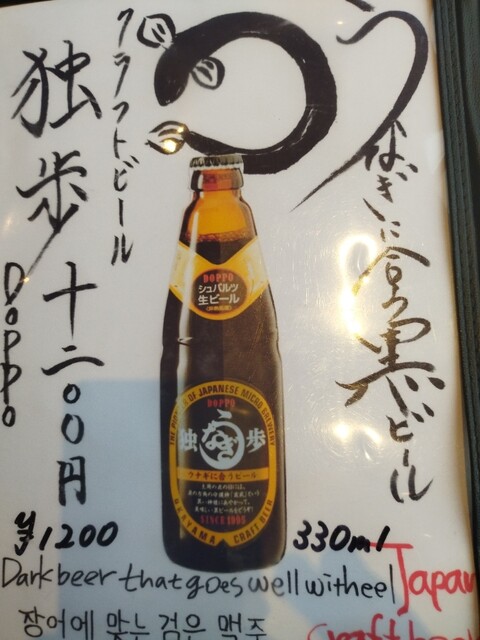 うなぎに合う黒ビール
クラフトビール
独歩 千二〇〇円
DOPPO
DOPPO
シュバルツ
生ビール
THE PIONEER OF JAPANESE MICRO BREWERY
DOPPO
独 うなぎ 歩
ウナギに合うビール
SINCE 1995
OKAYAMA CRAFT BEER
¥1200
330ml
Dark beer that goes well with eel
Japan
craft beer
장어에 맞는 검은 맥주